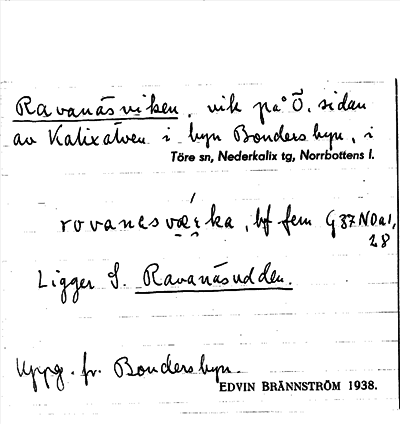 Ravanäsviken, vik på Ö. sidan
av Kalixälven i byn Bondersbyn, i
Töre sn, Nederkalix tg, Norrbottens l.
rovanɛsvæ̨ka, bf fem G37NDal,
28
Ligger S. Ravanäsudden.
Uppg. fr. Bondersbyn.
EDVIN BRÄNNSTRÖM 1938.